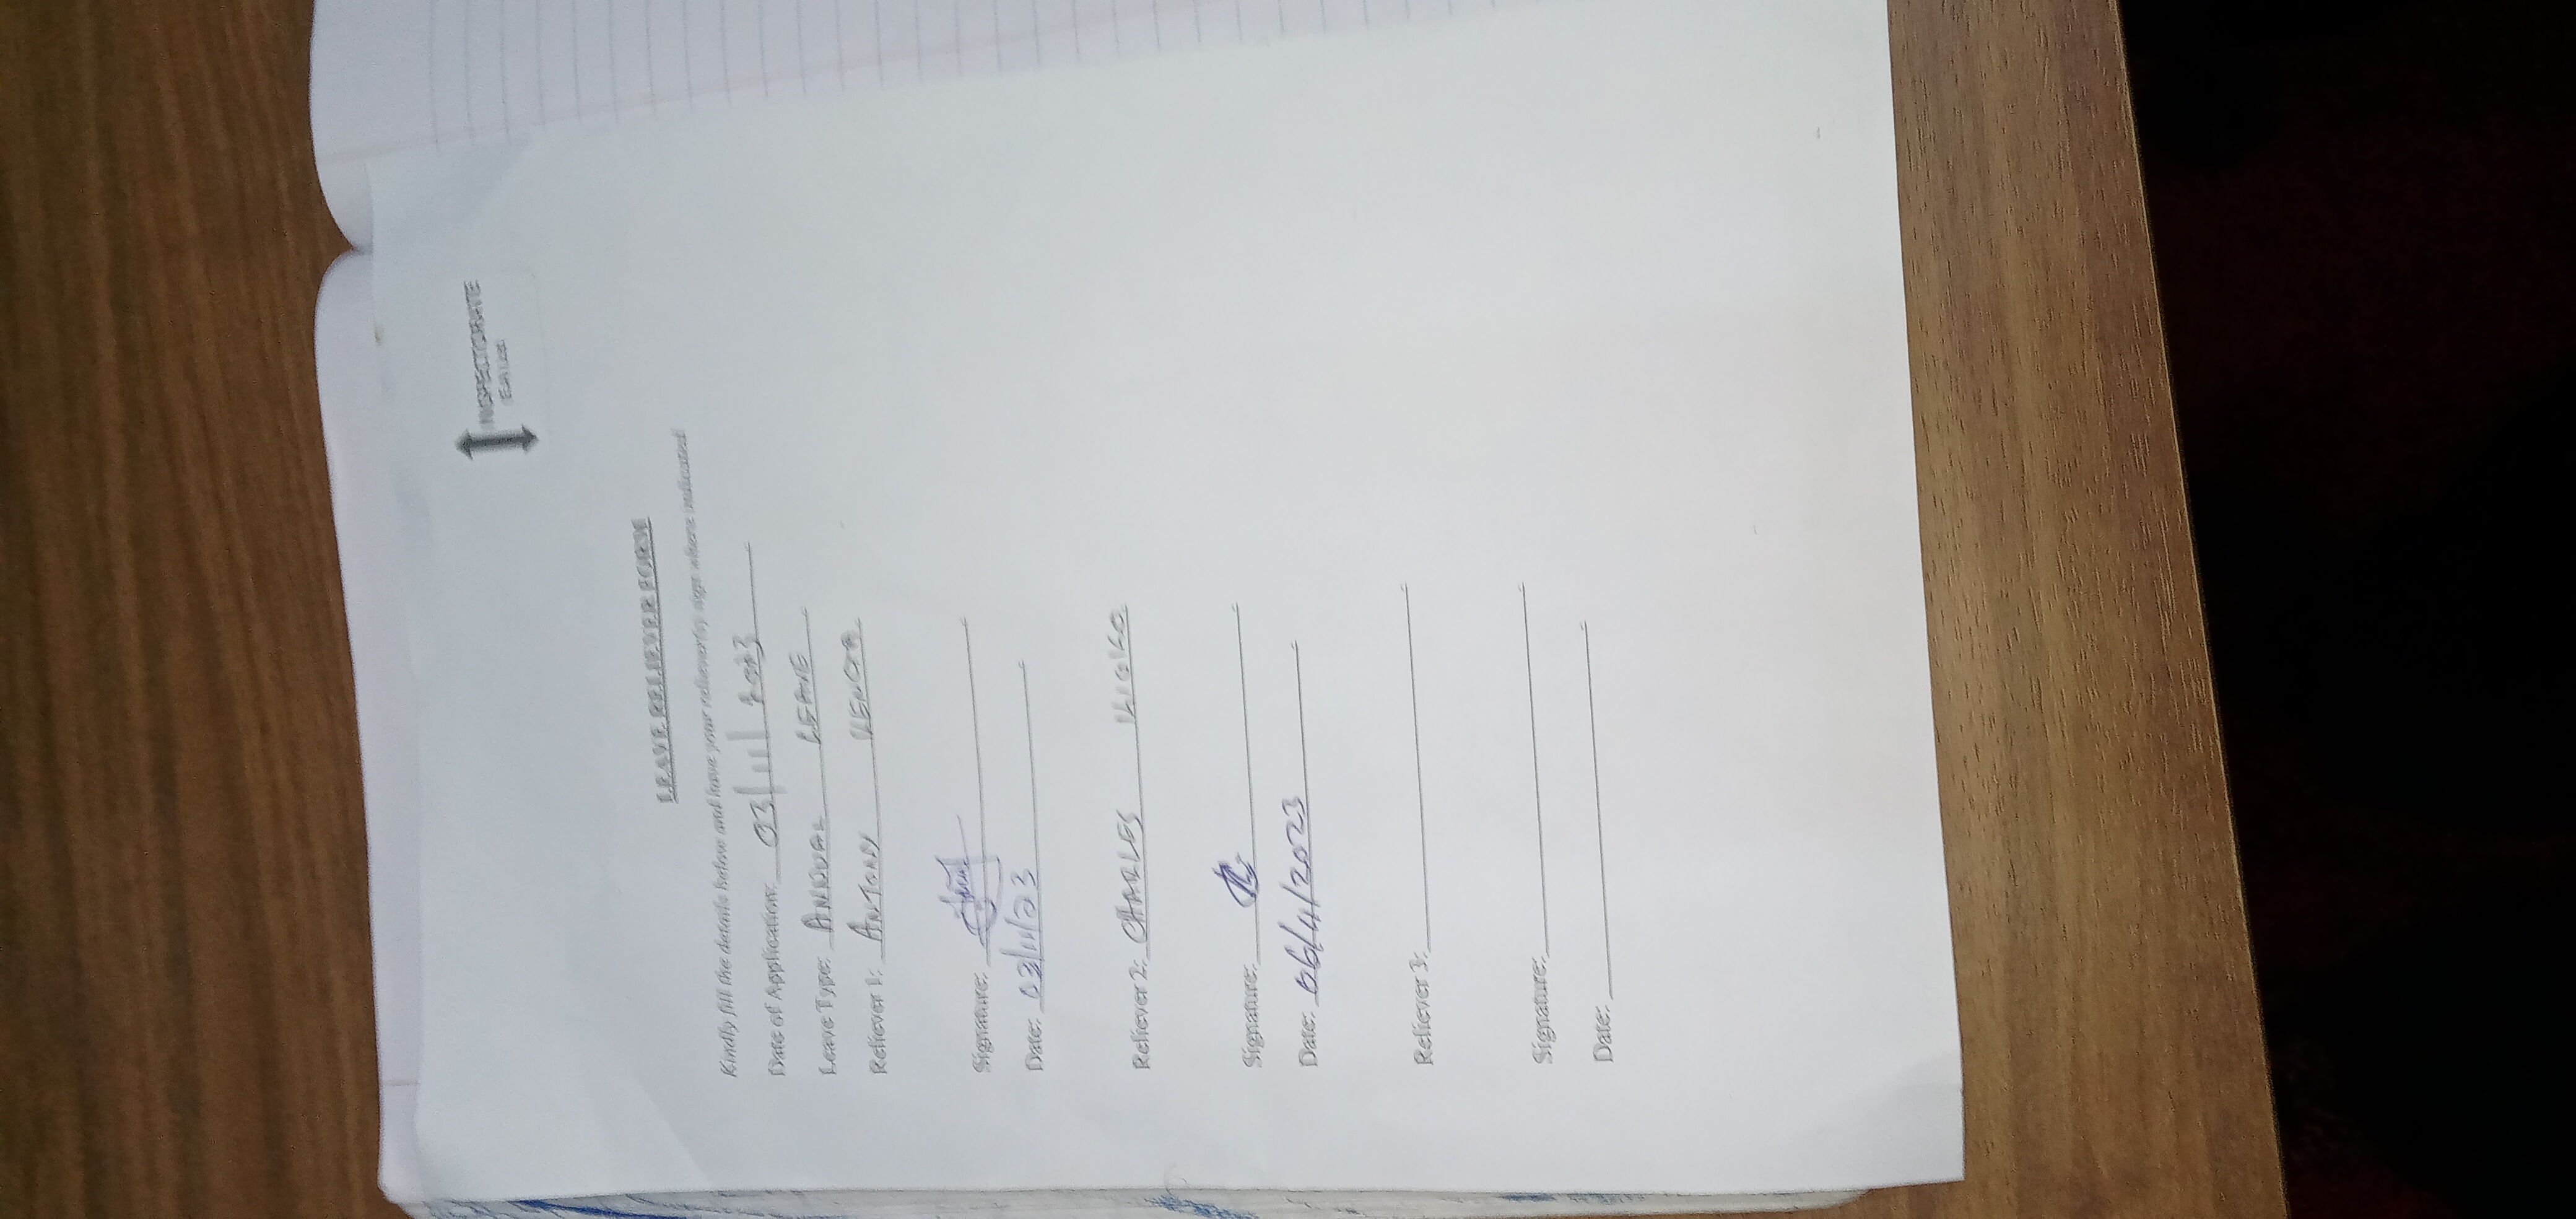 INSPECTORATE
LEAVE RELIEVER FORM
Kindly fill the details below and have your reliever(s) sign where indicated
Date of Application: 03/11/2023
Leave Type: ANNUAL LEAVE
Reliever 1: ANTONY
Signature:
Date: 03/11/23
Reliever 2: CHARLES KIOKO
Signature:
Date: 06/11/2023
Reliever 3:
Signature:
Date: